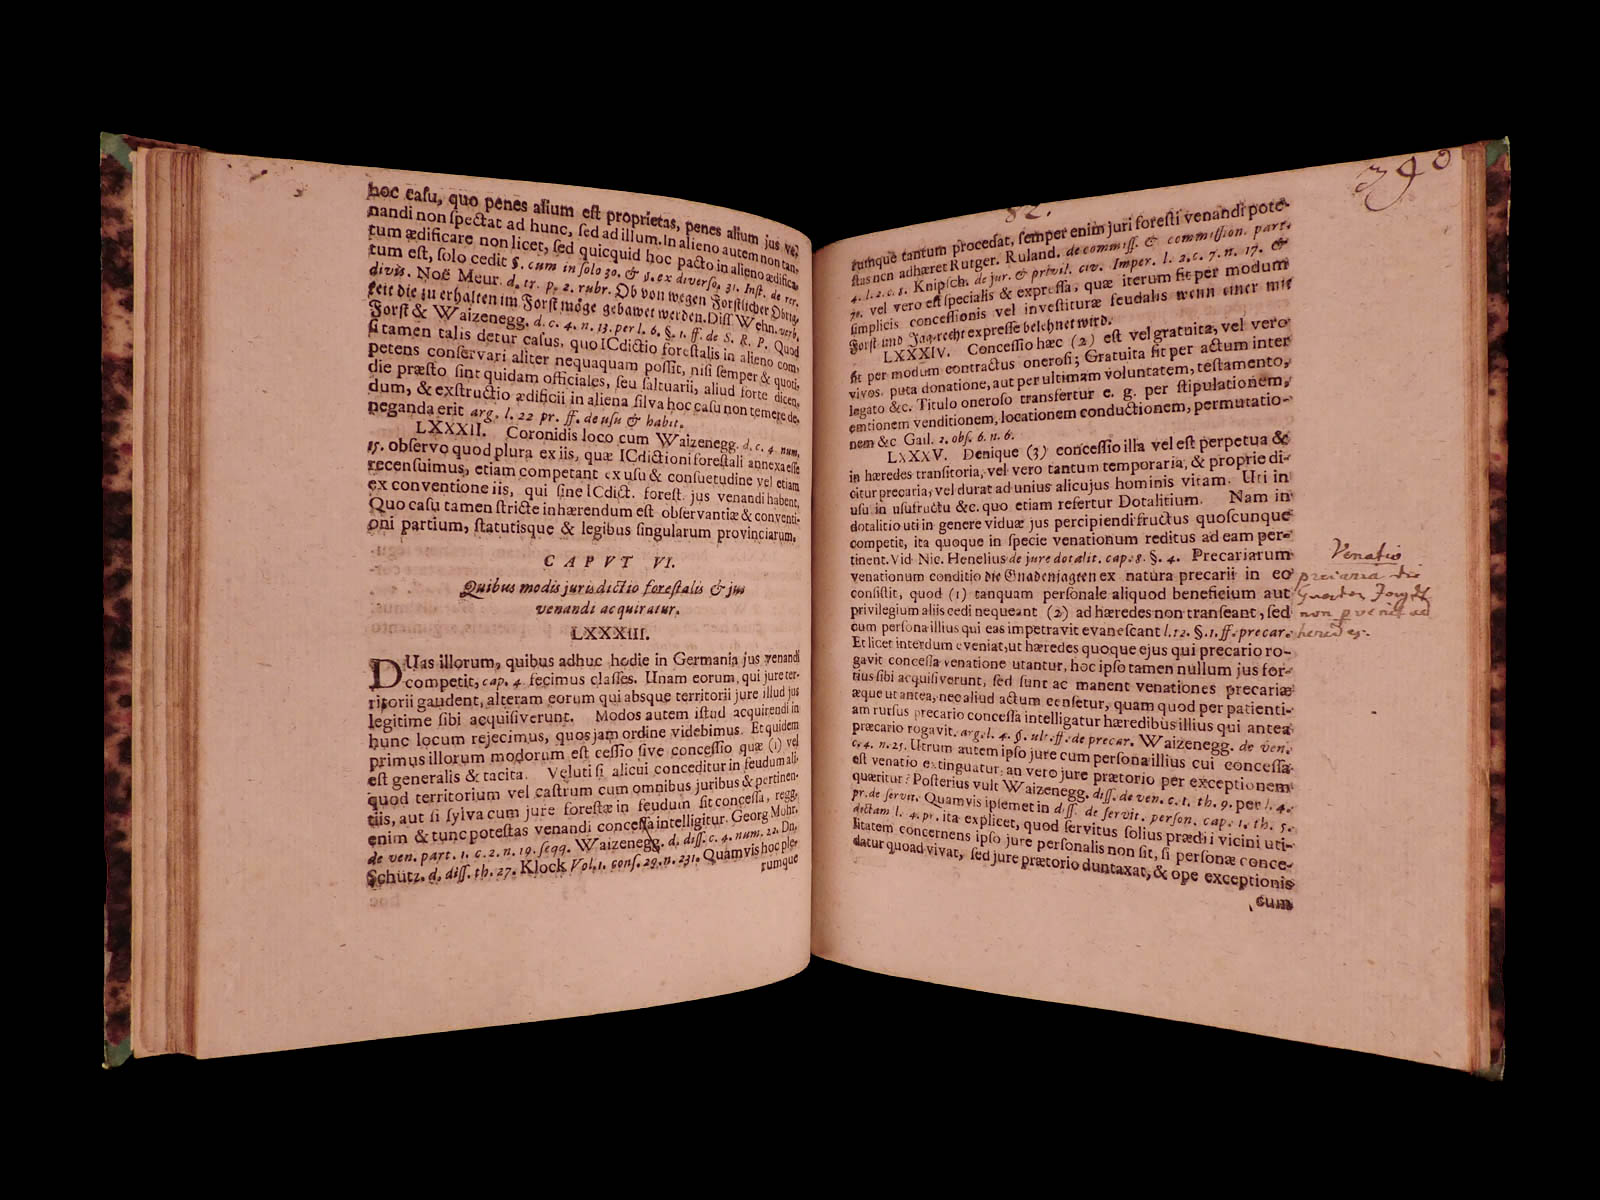 hoc caſu, quo penes alium eſt proprietas, penes alium jus ve,
nandi non ſpectat ad hunc, ſed ad illum. In alieno autem non tan,
tum ædificare non licet, ſed quicquid hoc pacto in alieno ædifica,
tum eſt, ſolo cedit §. cum in ſolo 30. & §. ex diverſo, 31. Inſt. de rer.
diviſ. Noë Meur. d. tr. p. 2. rubr. Ob von wegen Forſtlicher Obrig,
keit die zu erhalten im Forſt möge gebawet werden. Diſſ Wehn. verb.
Forſt & Waizenegg. d. c. 4. n. 13. per l. 6. §. 1. ff. de S. R. P. Quod
ſi tamen talis detur caſus, quo ICdictio foreſtalis in alieno com,
petens conſervari aliter nequaquam poſſit, niſi ſemper & quoti,
die præſto ſint quidam officiales, ſeu ſaltuarii, aliud forte dicen,
dum, & exſtructio ædificii in aliena ſilva hoc caſu non temere de,
neganda erit arg. l. 22 pr. ff. de uſu & habit.
LXXXII. Coronidis loco cum Waizenegg. d. c. 4 num,
15. obſervo quod plura ex iis, quæ ICdictioni foreſtali annexa eſſe
recenſuimus, etiam competant ex uſu & conſuetudine vel etiam
ex conventione iis, qui ſine ICdict. foreſt. jus venandi habent,
Quo caſu tamen ſtricte inhærendum eſt obſervantiæ & conventi-
oni partium, ſtatutisque & legibus ſingularum provinciarum.
CAPVT VI.
Quibus modis jurisdictio foreſtalis & jus
venandi acquiratur.
LXXXIII.
DUas illorum, quibus adhuc hodie in Germania jus venandi
competit, cap. 4 fecimus claſſes. Unam eorum, qui jure ter-
ritorii gaudent, alteram eorum qui absque territorii jure illud jus
legitime ſibi acquiſiverunt. Modos autem iſtud acquirendi in
hunc locum rejecimus, quos jam ordine videbimus. Et quidem
primus illorum modorum eſt ceſſio ſive conceſſio quæ (1) vel
eſt generalis & tacita. Veluti ſi alicui conceditur in feudum ali-
quod territorium vel caſtrum cum omnibus juribus & pertinen-
tiis, aut ſi ſylva cum jure foreſtæ in feudum ſit conceſſa, regg,
enim & tunc poteſtas venandi conceſſa intelligitur. Georg Mohr.
de ven. part. 1. c. 2. n. 19. ſeqq. Waizenegg. d. diſſ. c. 4. num. 22. Dn,
Schütz. d. diſſ. th. 27. Klock Vol. 1. conſ. 29. n. 231. Quamvis hoc ple-
rumque
390
82.
rumque tantum procedat, ſemper enim juri foreſti venandi pote-
ſtas non adhæret Rutger. Ruland. de commiſſ. & commiſſion. part.
4. l. 2. c. 1. Knipſch. de jur. & privil. civ. Imper. l. 2. c. 7. n. 17. &
70. vel vero eſt ſpecialis & expreſſa, quæ iterum fit per modum
ſimplicis conceſſionis vel inveſtituræ feudalis wenn einer mit
Forſt und Jagrecht expreſſe belehnet wird.
LXXXIV. Conceſſio hæc (2) eſt vel gratuita, vel vero
fit per modum contractus oneroſi; Gratuita fit per actum inter
vivos, puta donatione, aut per ultimam voluntatem, teſtamento,
legato &c. Titulo oneroſo transfertur e. g. per ſtipulationem,
emtionem venditionem, locationem conductionem, permutatio-
nem &c Gail. 2. obſ. 6. n. 6.
LXXXV. Denique (3) conceſſio illa vel eſt perpetua &
in hæredes tranſitoria, vel vero tantum temporaria, & proprie di-
citur precaria, vel durat ad unius alicujus hominis vitam. Uti in
uſu in uſufructu &c. quo etiam refertur Dotalitium. Nam in
dotalitio uti in genere viduæ jus percipiendi fructus quoscunque
competit, ita quoque in ſpecie venationum reditus ad eam per-
tinent. Vid. Nic. Henelius de jure dotalit. cap. 8. §. 4. Precariarum
venationum conditio die Gnadenjagten ex natura precarii in eo
conſiſtit, quod (1) tanquam perſonale aliquod beneficium aut
privilegium aliis cedi nequeant (2) ad hæredes non tranſeant, ſed
cum perſona illius qui eas impetravit evaneſcant l. 12. §. 1. ff. precar.
Et licet interdum eveniat, ut hæredes quoque ejus qui precario ro-
gavit conceſſa venatione utantur, hoc ipſo tamen nullum jus for-
tius ſibi acquiſiverunt, ſed ſunt ac manent venationes precariæ
æque ut antea, nec aliud actum cenſetur, quam quod per patienti-
am rurſus precario conceſſa intelligatur hæredibus illius qui antea
præcario rogavit. arg. l. 4. §. ult. ff. de precar. Waizenegg. de ven.
c. 4. n. 25. Utrum autem ipſo jure cum perſona illius cui conceſſa
eſt venatio extinguatur, an vero jure prætorio per exceptionem
quæritur? Poſterius vult Waizenegg. diſſ. de ven. c. 1. th. 9. per l. 4.
pr. de ſervit. Quamvis ipſemet in diſſ. de ſervit. perſon. cap. 1. th. 5.
dictam l. 4. pr. ita explicet, quod ſervitus ſolius prædii vicini uti-
litatem concernens ipſo jure perſonalis non ſit, ſi perſonæ conce-
datur quoad vivat, ſed jure prætorio duntaxat, & ope exceptionis
cum
Venatio
precaria die
non ad
heredes.